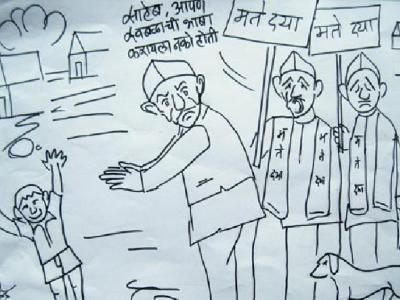 साहेब, आपण
स्वबळाची भाषा
करायला नको होती
मते दया
मते दया
म
ते
दया
म
ते
दया
म
ते
दया
म
ते
दया